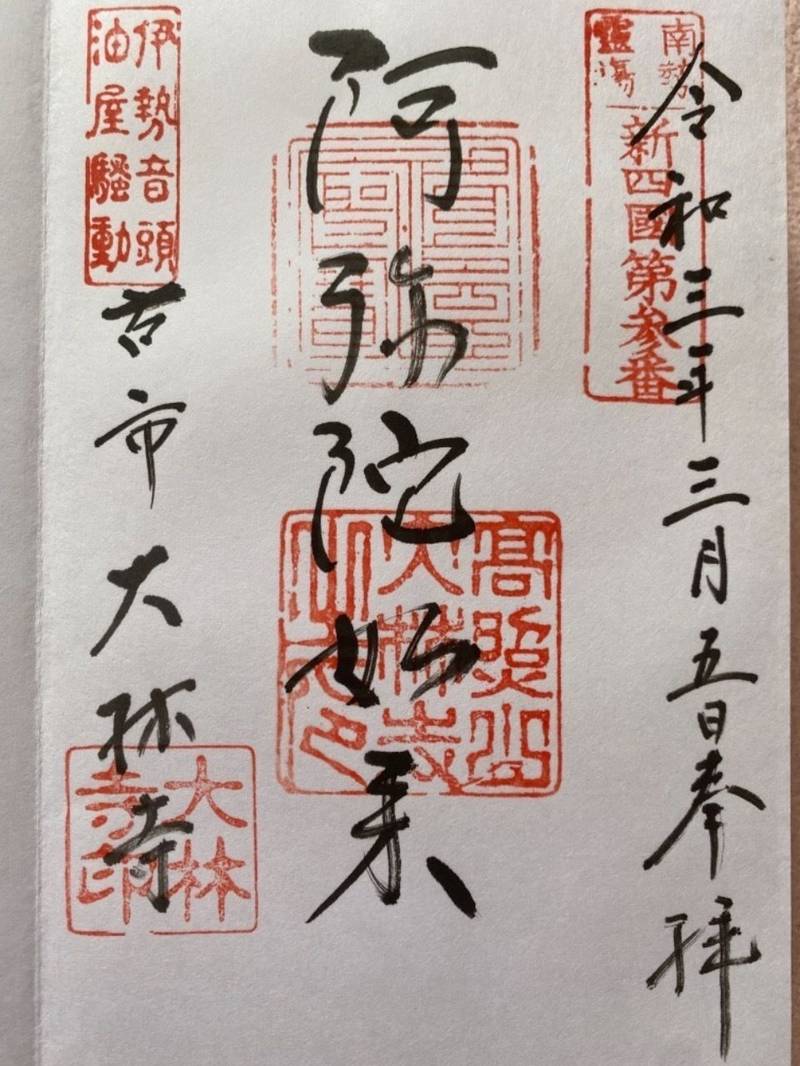 南勢
靈場
新四國第参番
令和三年三月五日奉拝
阿弥陀如来
高照山
大林寺
伊勢音頭
油屋騒動
古市大林寺
大林
寺印